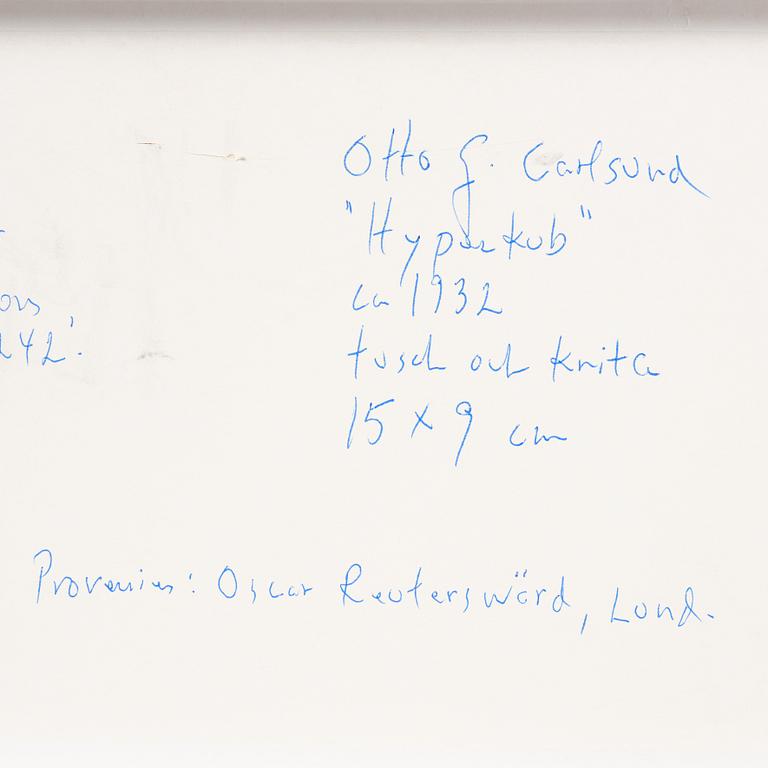 Otto G. Carlsund
"Hyperkub"
ca 1932
tusch och krita
15 x 9 cm
ons
242'.
Proveniens: Oscar Reuterswärd, Lund.